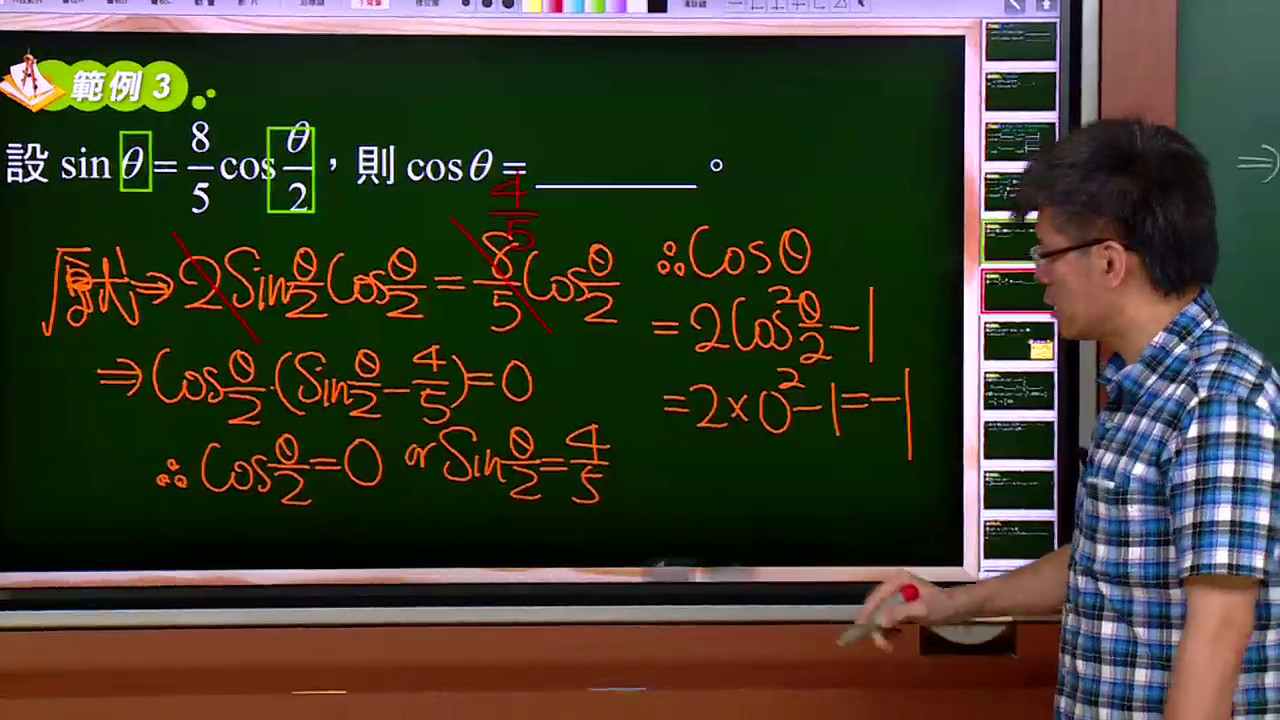 範例 3
設 sin θ = 8/5 cos θ/2,則 cos θ = ________ 。
4/5
原式 ⇒ 2 Sin θ/2 Cos θ/2 = 8/5 Cos θ/2
⇒ Cos θ/2 · (Sin θ/2 - 4/5) = 0
∴ Cos θ/2 = 0 or Sin θ/2 = 4/5
∴ Cos θ
= 2 Cos² θ/2 - 1
= 2 × 0² - 1 = -1
⇒